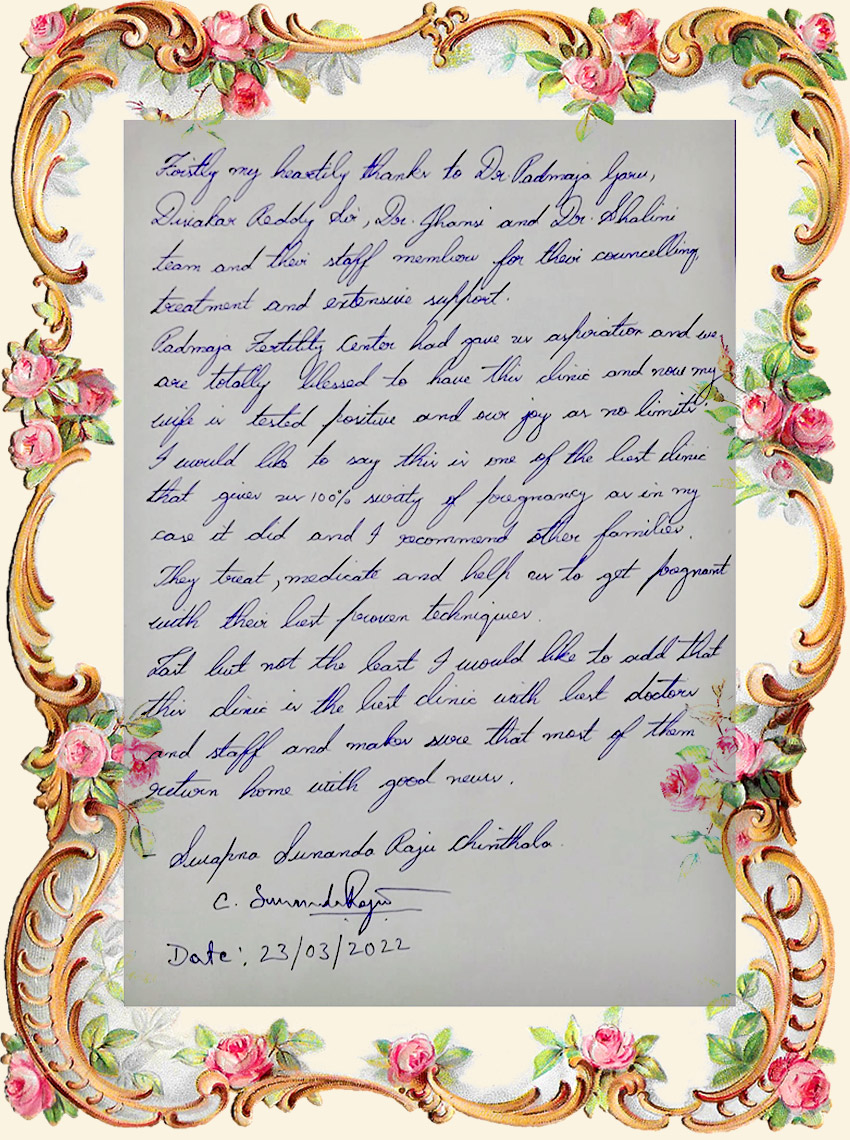 Firstly my heartily thanks to Dr. Padmaja Garu,
Divakar Reddy Sir, Dr. Jhansi and Dr. Shalini
team and their staff members for their councelling,
treatment and extensive support.
Padmaja Fertility Center had gave us aspiration and we
are totally blessed to have this clinic and now my
wife is tested positive and our joy as no limits.
I would like to say this is one of the best clinic
that gives us 100% surity of pregnancy as in my
case it did and I recommend other families.
They treat, medicate and help us to get pregnant
with their best proven techniques.
Last but not the least I would like to add that
this clinic is the best clinic with best doctors
and staff and makes sure that most of them
return home with good news.
- Swapna Sunanda Raju Chinthala.
C. Sunanda Raju
Date: 23/03/2022